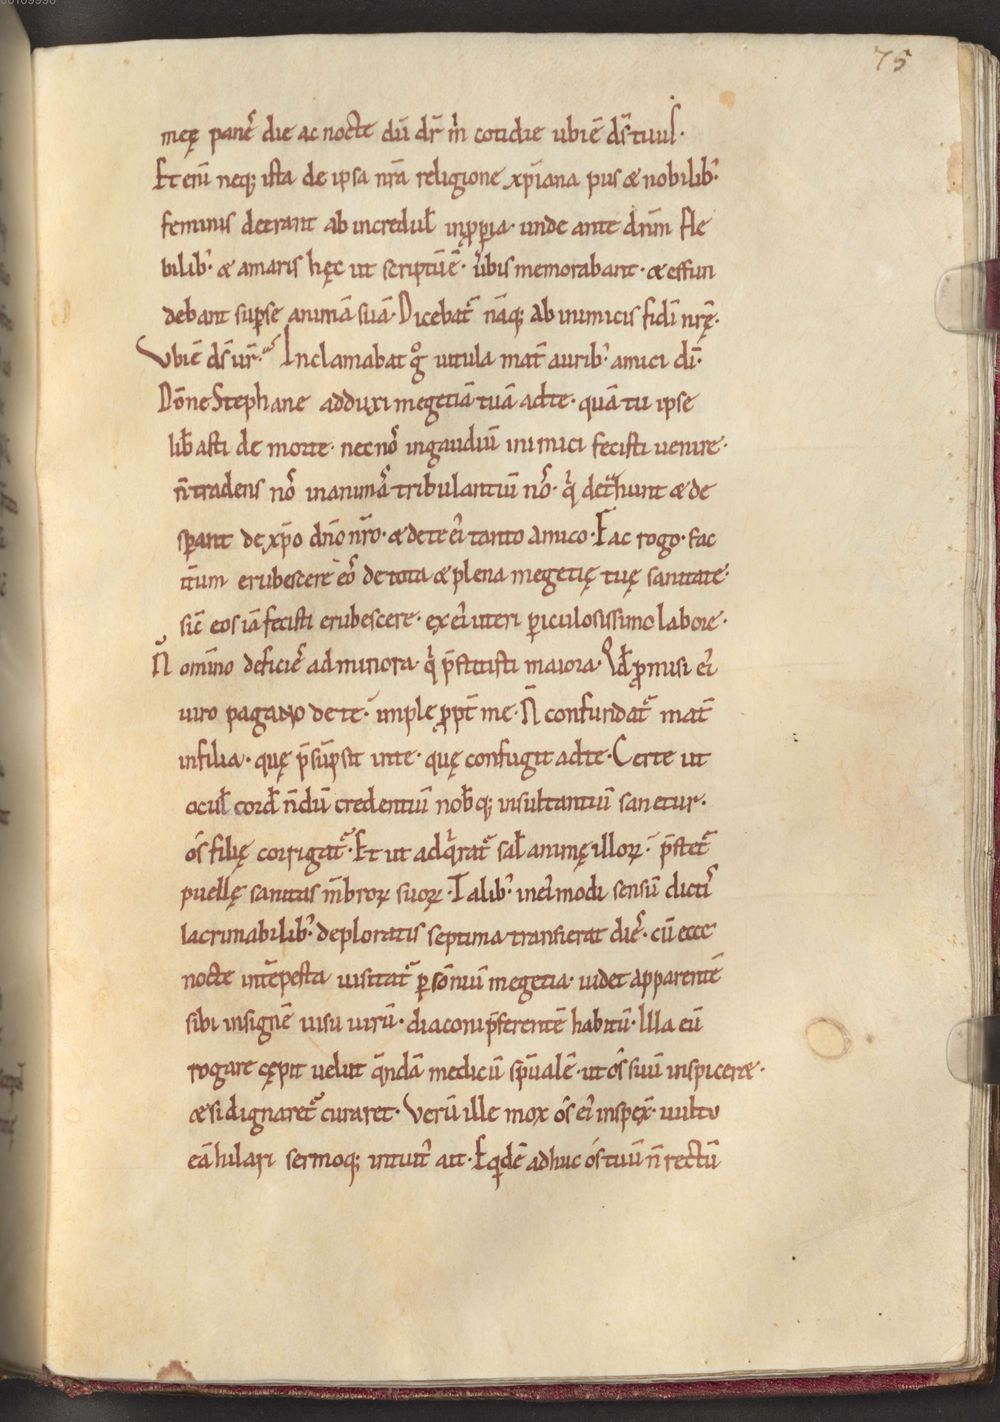 75
meę panes̄ die ac nocte dū dr̄ m̄ cotidie ubi ē ds̄ tuus·
Et eni neq; ista de ipsa nr̄a religione xp̄iana pus & nobilib;
feminis detrant ab incredul̄ inp̱p̱ia· unde ante dn̄m fle
bilib; & amaris hęc ut scriptū ē· ūbis memorabant· & effun
debant sup̱ se animā suā· Dicebat᷑ nāq; ab inimicis fidi nr̄ę·
Vbi ē ds̄ ur̄· Inclamabat g̊ uitula mat̄ aurib; amici dī·
Dōne Stephane adduxi megetiā tuā ad te· quā tu ipse
lib̄asti de morte· nec nō in gaudiū inimici fecisti uenire·
n̄ tradens nō in animā tribulantiū nō· q̇ det᷑hunt & de
sp̱ant de xp̄o dn̄o nr̄o· & de te ei tanto amico· Fac rogo· fac
it̄um erubescere eo᷑ de tota & plena megetię tuę sanitate·
sic̄ eos iā fecisti erubescere· ex ei uteri p̱iculosissimo labore·
N̄ omīno deficies̄ ad minora· q̇ p̄stitisti maiora· Qd̄ p̱misi ei
uiro pagano de te· imple p̱pt̄ me· N̄ confundat᷑ mat̄
in filia· quę p̄sūpsit in te· quę confugit ad te· Certe ut
ocul̄ cord̄ n̄dū credentiū nob̄q; insultantiū sanetur·
os filię corrigat᷑· Et ut adq̇rat᷑ sal̄ animę illoꝝ· p̄stet᷑
puellę sanitas m̄broꝝ suoꝝ· Talib; in ei modi sensū dictis
lacrimabilib; deploratis septima transierat dies̄· cū ecce
nocte int̄pesta uisitat᷑ p̱ sōniū megetia· uidet apparentē
sibi insignē uisu uirū· diaconi p̄ferentē habitū· Illa eū
rogare cępit uelut q̄ndā medicū sp̄ualē· ut os suū inspiceret·
& si dignaret᷑ curaret· Verū ille mox os ei inspex̄· uultu
eā hilari sermoq; intuit᷑ ait· Eqdē adhuc os tuū n̄ rectū